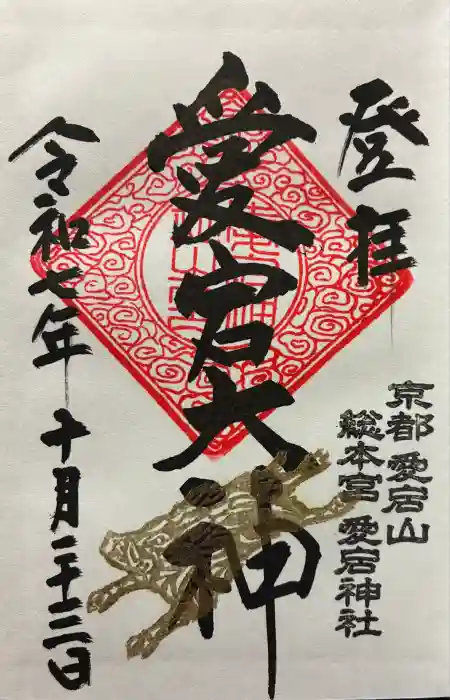 登拝
京都 愛宕山
総本宮 愛宕神社
愛宕大神
令和七年 十月二十三日